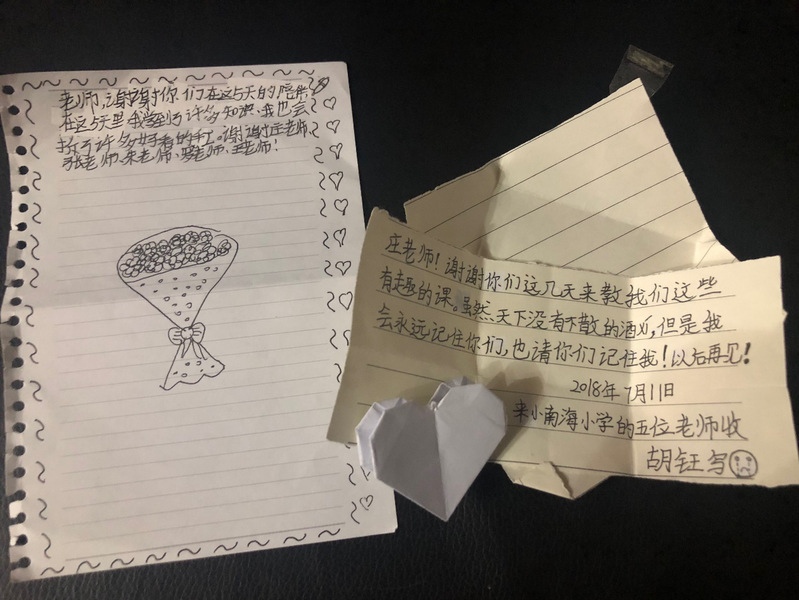 老师，谢谢你们在这5天的陪伴
在这5天里我学到了许多知识、我也会
折了许多好看的手工。谢谢庄老师、
张老师、朱老师、罗老师、王老师！
庄老师！谢谢你们这几天来教我们这些
有趣的课。虽然天下没有不散的酒从，但是我
会永远记住你们，也请你们记住我！以后再见！
2018年7月11日
来小南海小学的五位老师收
胡钰写